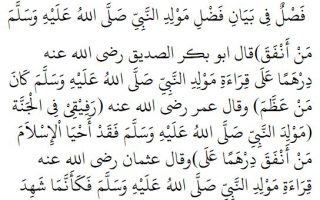 فَصْلٌ فِي بَيَانِ فَضْلِ مَوْلِدِ النَّبِيِّ صَلَّى اللهُ عَلَيْهِ وَسَلَّمَ
مَنْ أَنْفَقَ)قال ابو بكر الصديق رضى الله عنه
دِرْهَمًا عَلَى قِرَاءَةِ مَوْلِدِ النَّبِيِّ صَلَّى اللهُ عَلَيْهِ وَسَلَّمَ كَانَ
مَنْ عَظَّمَ) وقال عمر رضى الله عنه (رَفِيْقِيْ فِي الْجَنَّةِ
(مَوْلِدَ النَّبِيِّ صَلَّى اللهُ عَلَيْهِ وَسَلَّمَ فَقَدْ أَحْيَا اْلإِسْلاَمَ
مَنْ أَنْفَقَ دِرْهَمًا عَلَى)وقال عثمان رضى الله عنه
قِرَاءَةِ مَوْلِدِ النَّبِيِّ صَلَّى اللهُ عَلَيْهِ وَسَلَّمَ فَكَأَنَّمَا شَهِدَ